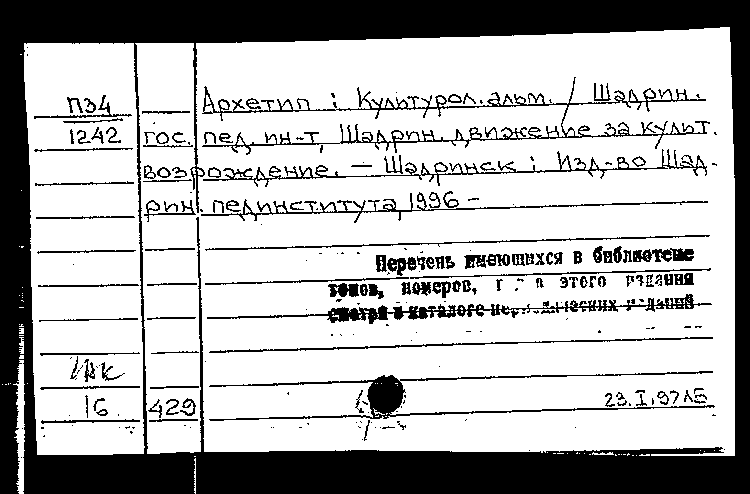 П34 Архетип : Культурол. альм. / Шадрин.
1242 гос. пед. ин-т, Шадрин. движение за культ.
возрождение. – Шадринск : Изд-во Шад-
рин. пединститута, 1996 –
Перечень имеющихся в библиотеке
томов, номеров, этого издания
смотри в каталоге периодических изданий
16 429 23.I.97